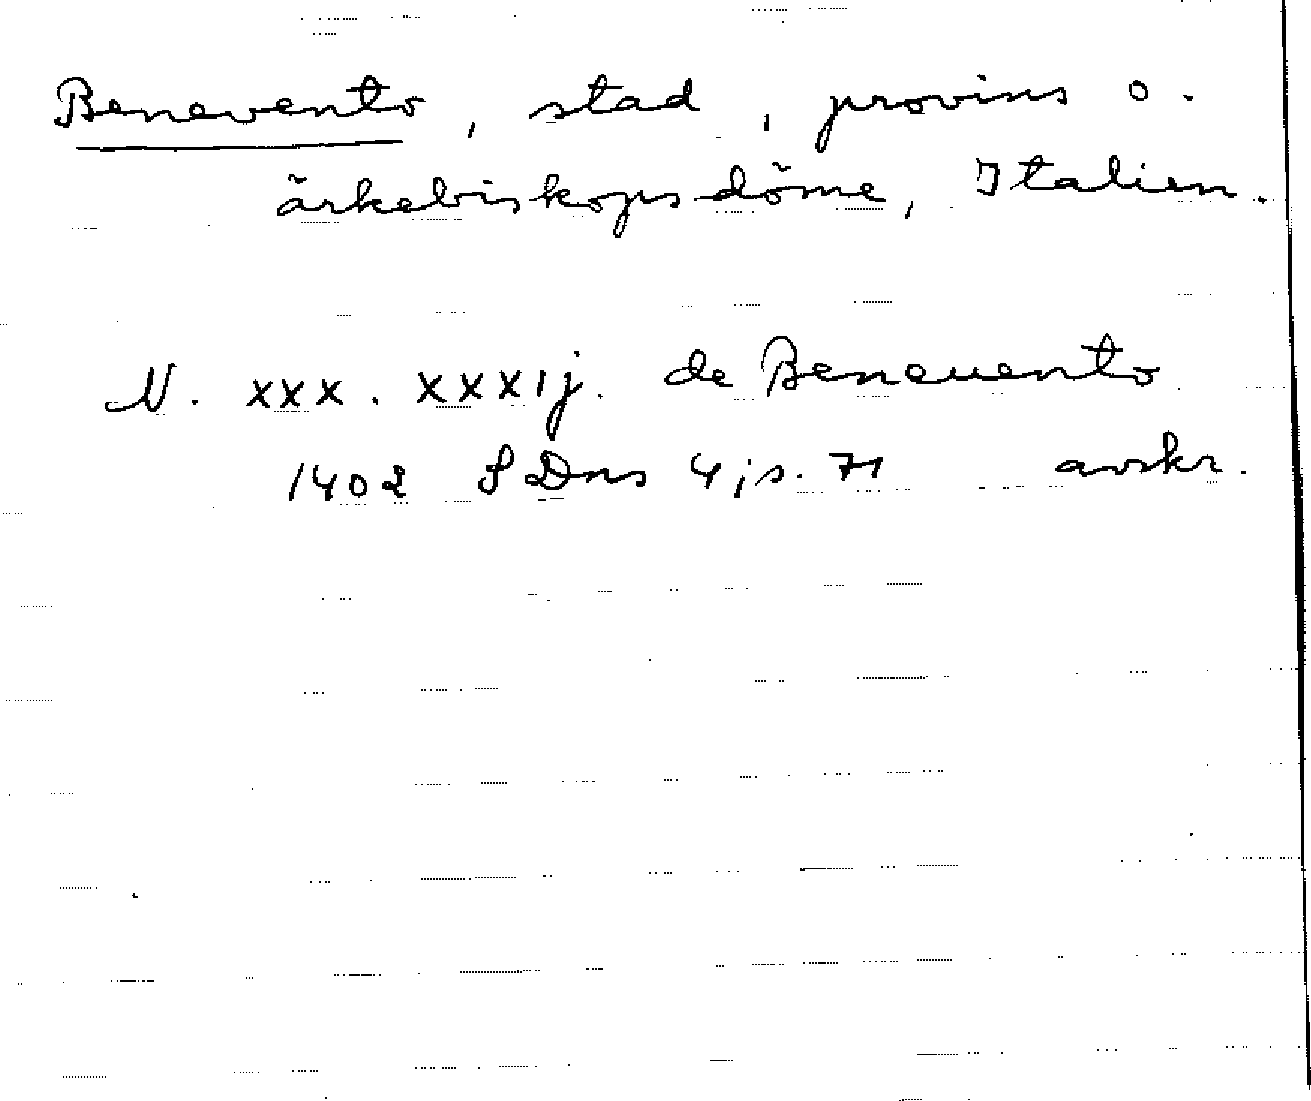 Benevento, stad, provins o.
ärkebiskopsdöme, Italien.
N. xxx. xxxij. de Beneuento
1402 SDns 4, s. 71 avskr.